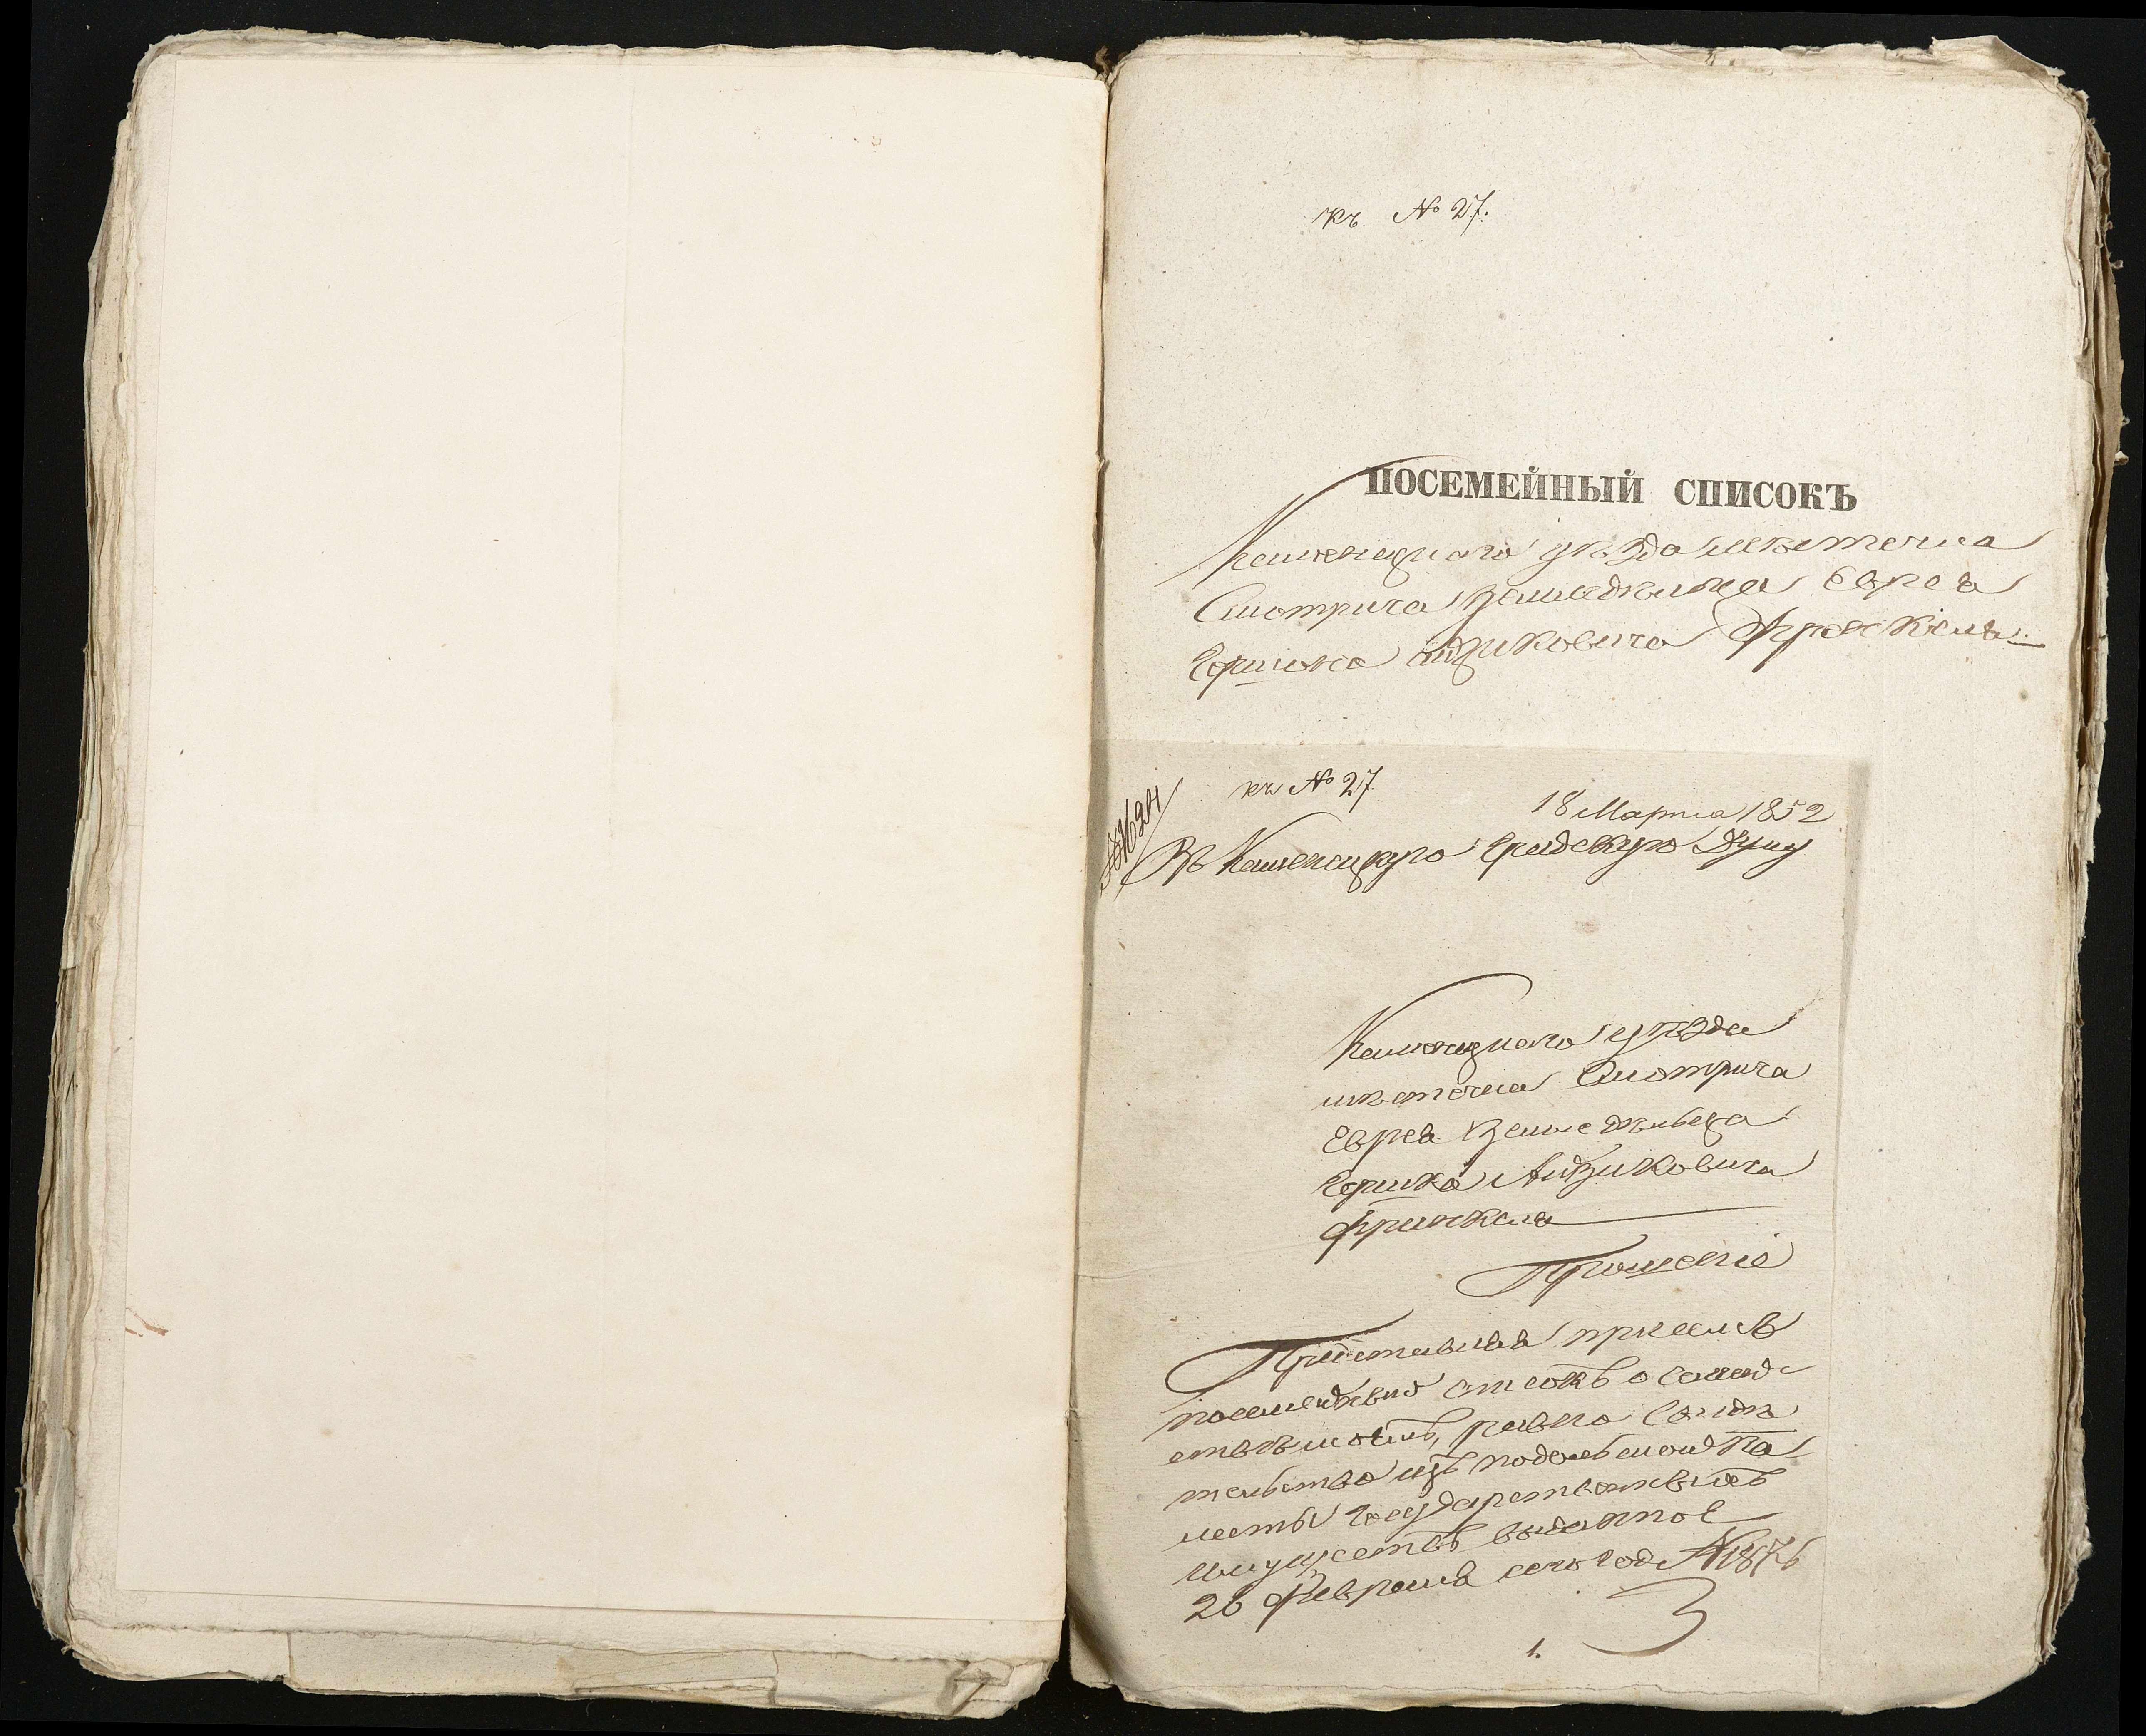 къ № 27.
ПОСЕМЕЙНЫЙ СПИСОКЪ
Каменецкаго уѣзда мѣстечка
Смотрича земледѣльца Еврея
Гершка Айзиковича Френкеля.
къ № 27.
18 Марта 1852
Въ Каменецкую Градскую Думу
Каменецкаго уѣзда
мѣстечка Смотрича
Еврея земледѣльца
Гершка Айзиковича
Френкеля
Прошеніе
Представляя при семъ
посемейный списокъ о семей
ствѣ моемъ, равно свидѣ
тельство изъ подольской Па
латы Государственныхъ
имуществъ выданное
20 Февраля сего года №
1.